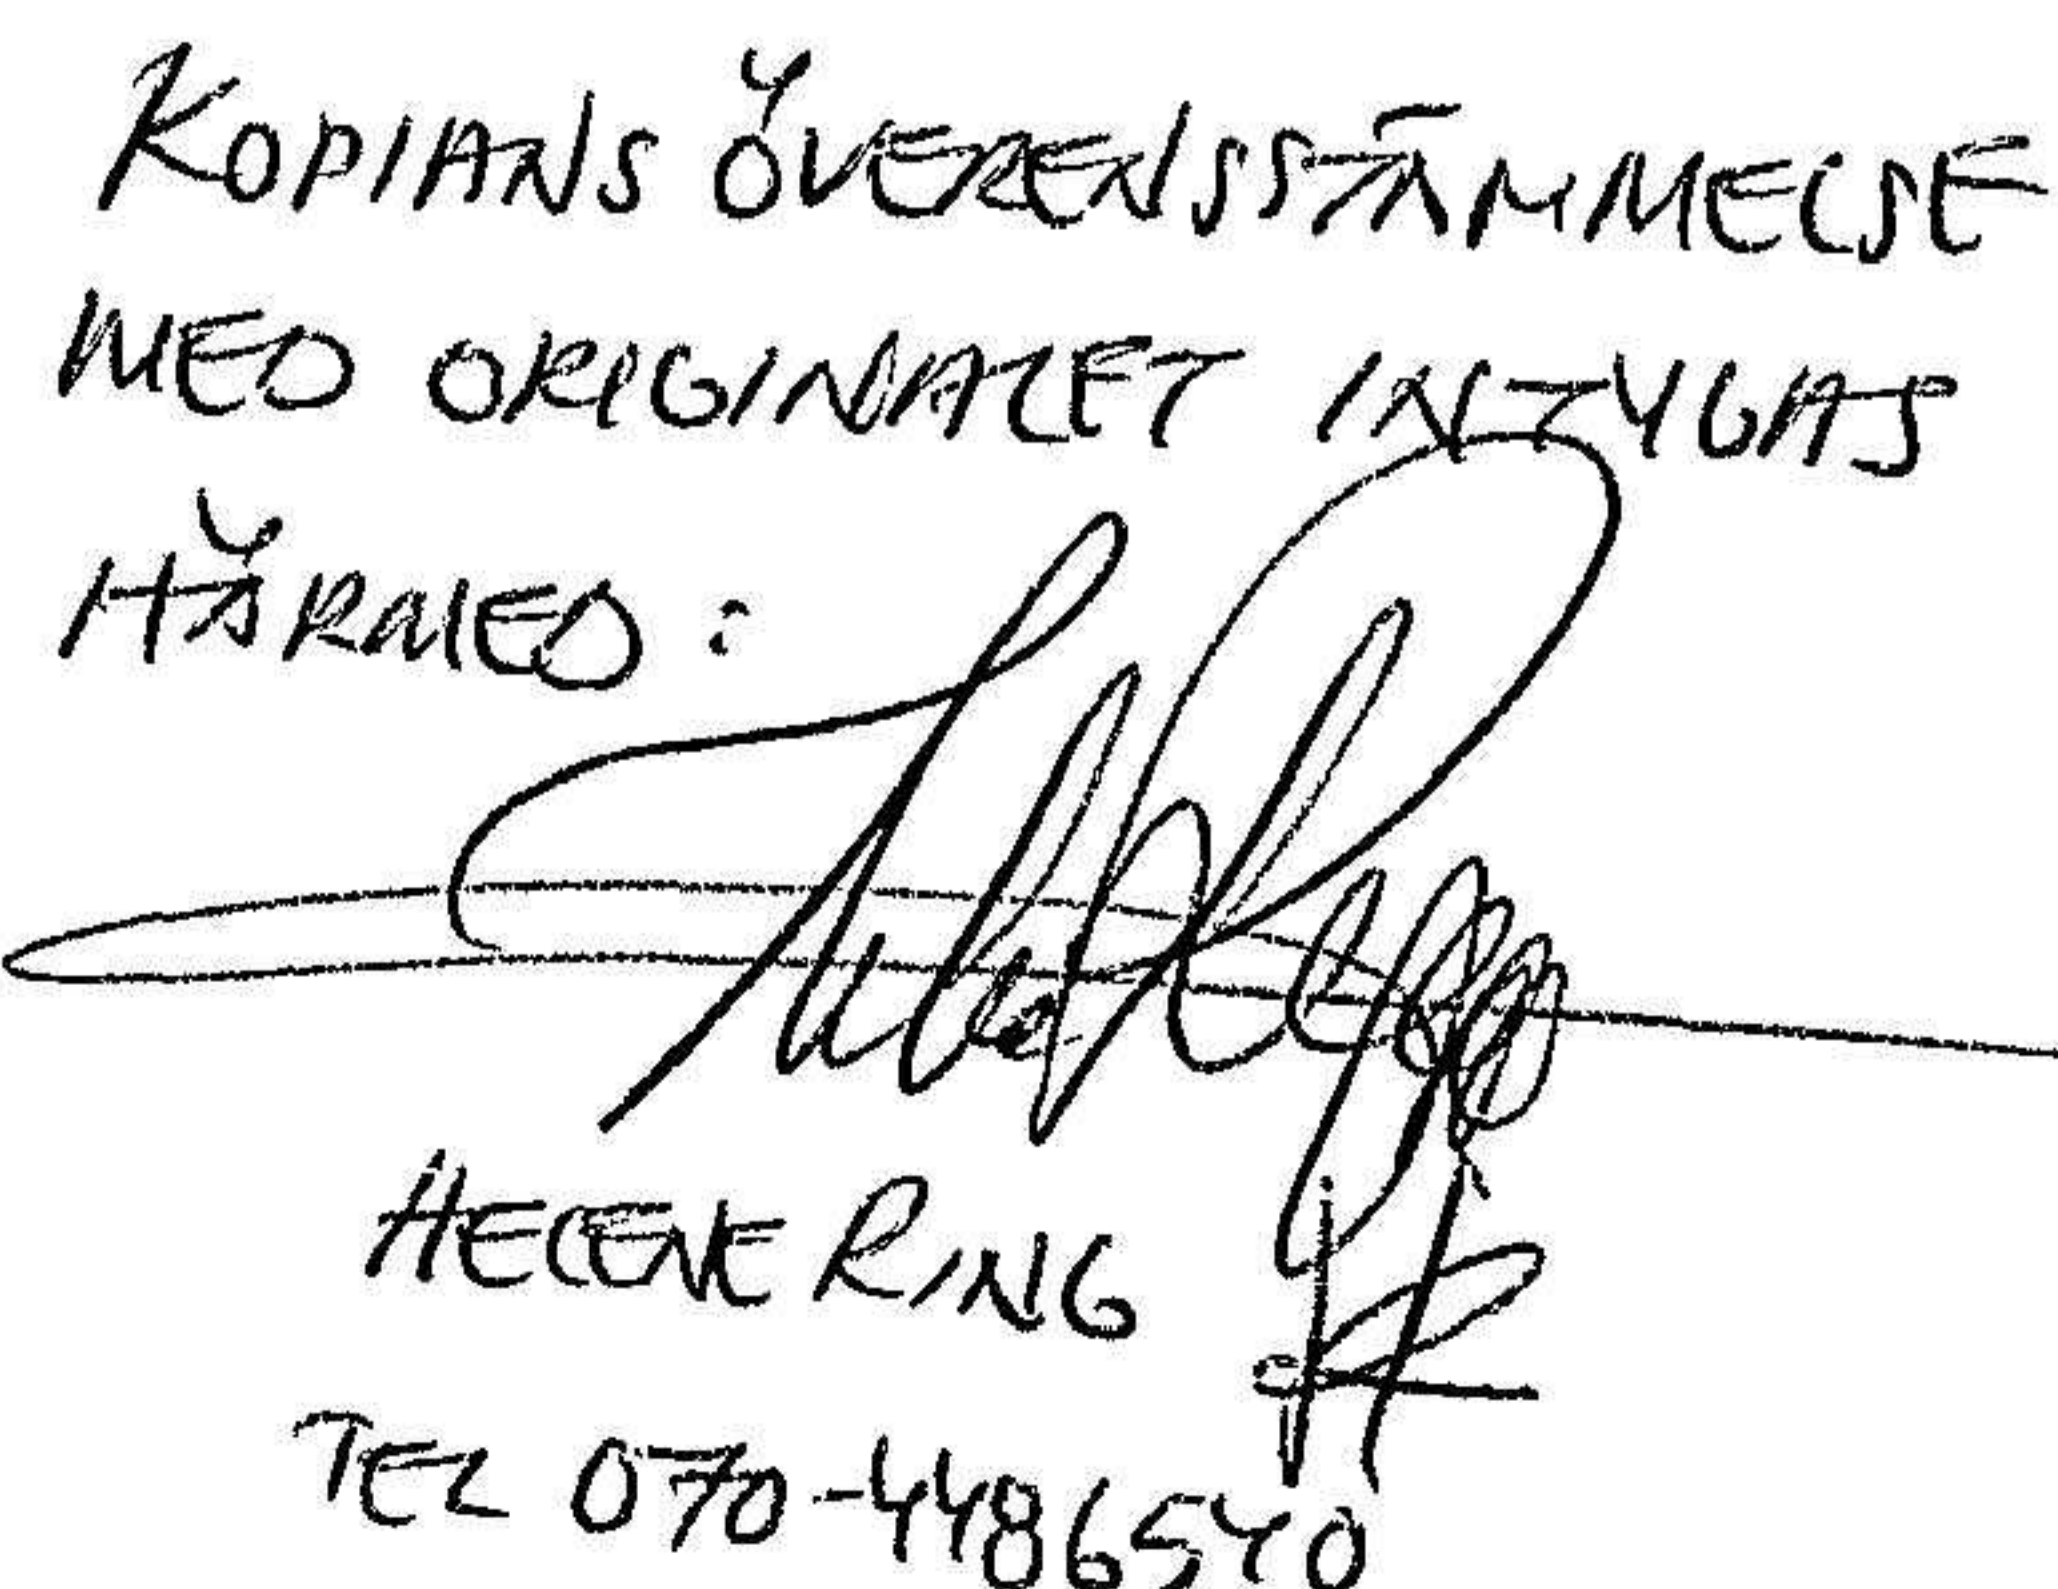 KOPIANS ÖVERENSSTÄMMELSE
MED ORIGINALET INTYGAS
HÄRMED:
HELENE RING
TEL 070-4486540